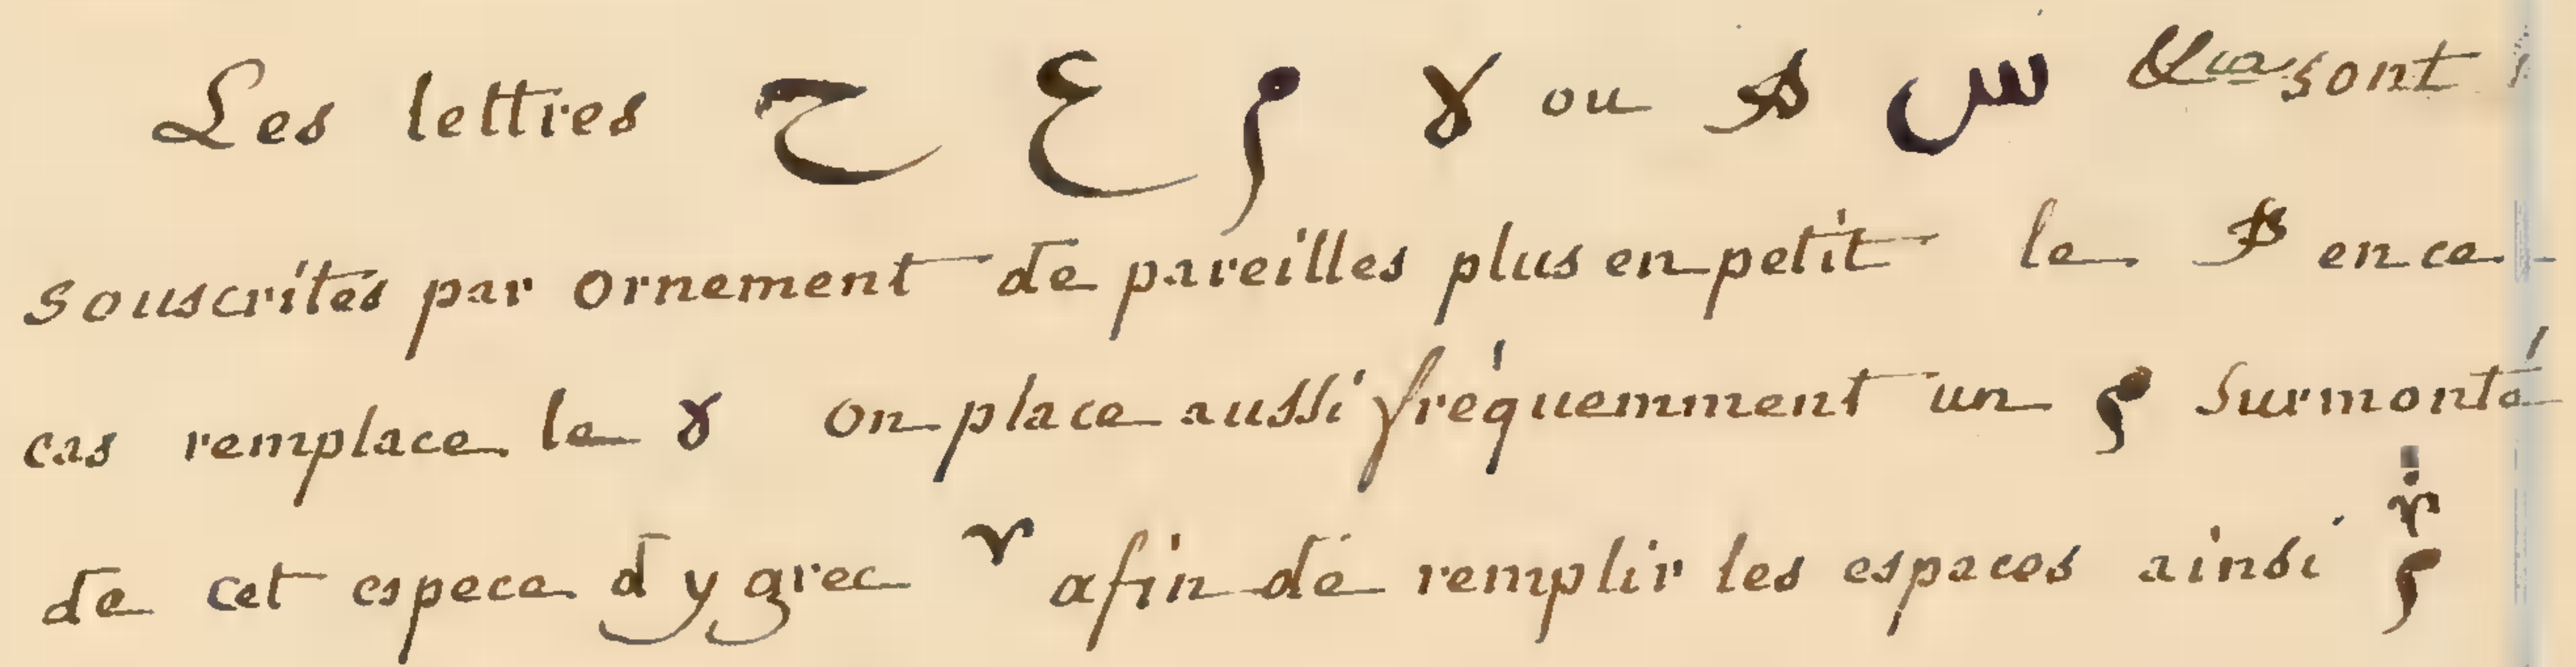 Les lettres ح ع م لا ou س &ca sont
souscrites par ornement de pareilles plus en petit le en ce
cas remplace le لا on place aussi fréquemment un م surmonté
de cet espece d y grec afin de remplir les espaces ainsi